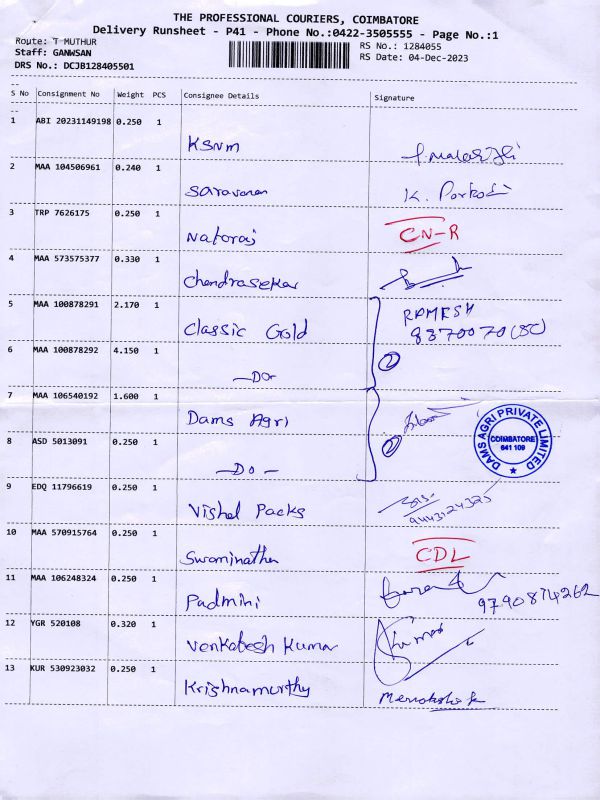 THE PROFESSIONAL COURIERS, COIMBATORE
Delivery Runsheet - P41 - Phone No.:0422-3505555 - Page No.:1
Route: T MUTHUR
RS No.: 1284055
Staff: GANWSAN
RS Date: 04-Dec-2023
DRS No.: DCJB128405501
S No Consignment No Weight PCS Consignee Details Signature
1 ABI 20231149198 0.250 1
KSNM
2 MAA 104506961 0.240 1
Saravanan K. Porkodi
3 TRP 7626175 0.250 1
Nataraj CN-R
4 MAA 573575377 0.330 1
Chendrasekar
5 MAA 100878291 2.170 1 RAMESH
Classic Gold 8870070
6 MAA 100878292 4.150 1 2
—Do-
7 MAA 106540192 1.600 1
Dams Agri
8 ASD 5013091 0.250 1 2
—Do—
DAMS AGRI PRIVATE LIMITED
COIMBATORE
641 109
9 EDQ 11796619 0.250 1
Vishal Packs 9443124325
10 MAA 570915764 0.250 1
Swaminathan CDL
11 MAA 106248324 0.250 1
Padmini 9790874262
12 YGR 520108 0.320 1
Venkatesh Kumar Kumar
13 KUR 530923032 0.250 1
Krishnamurthy